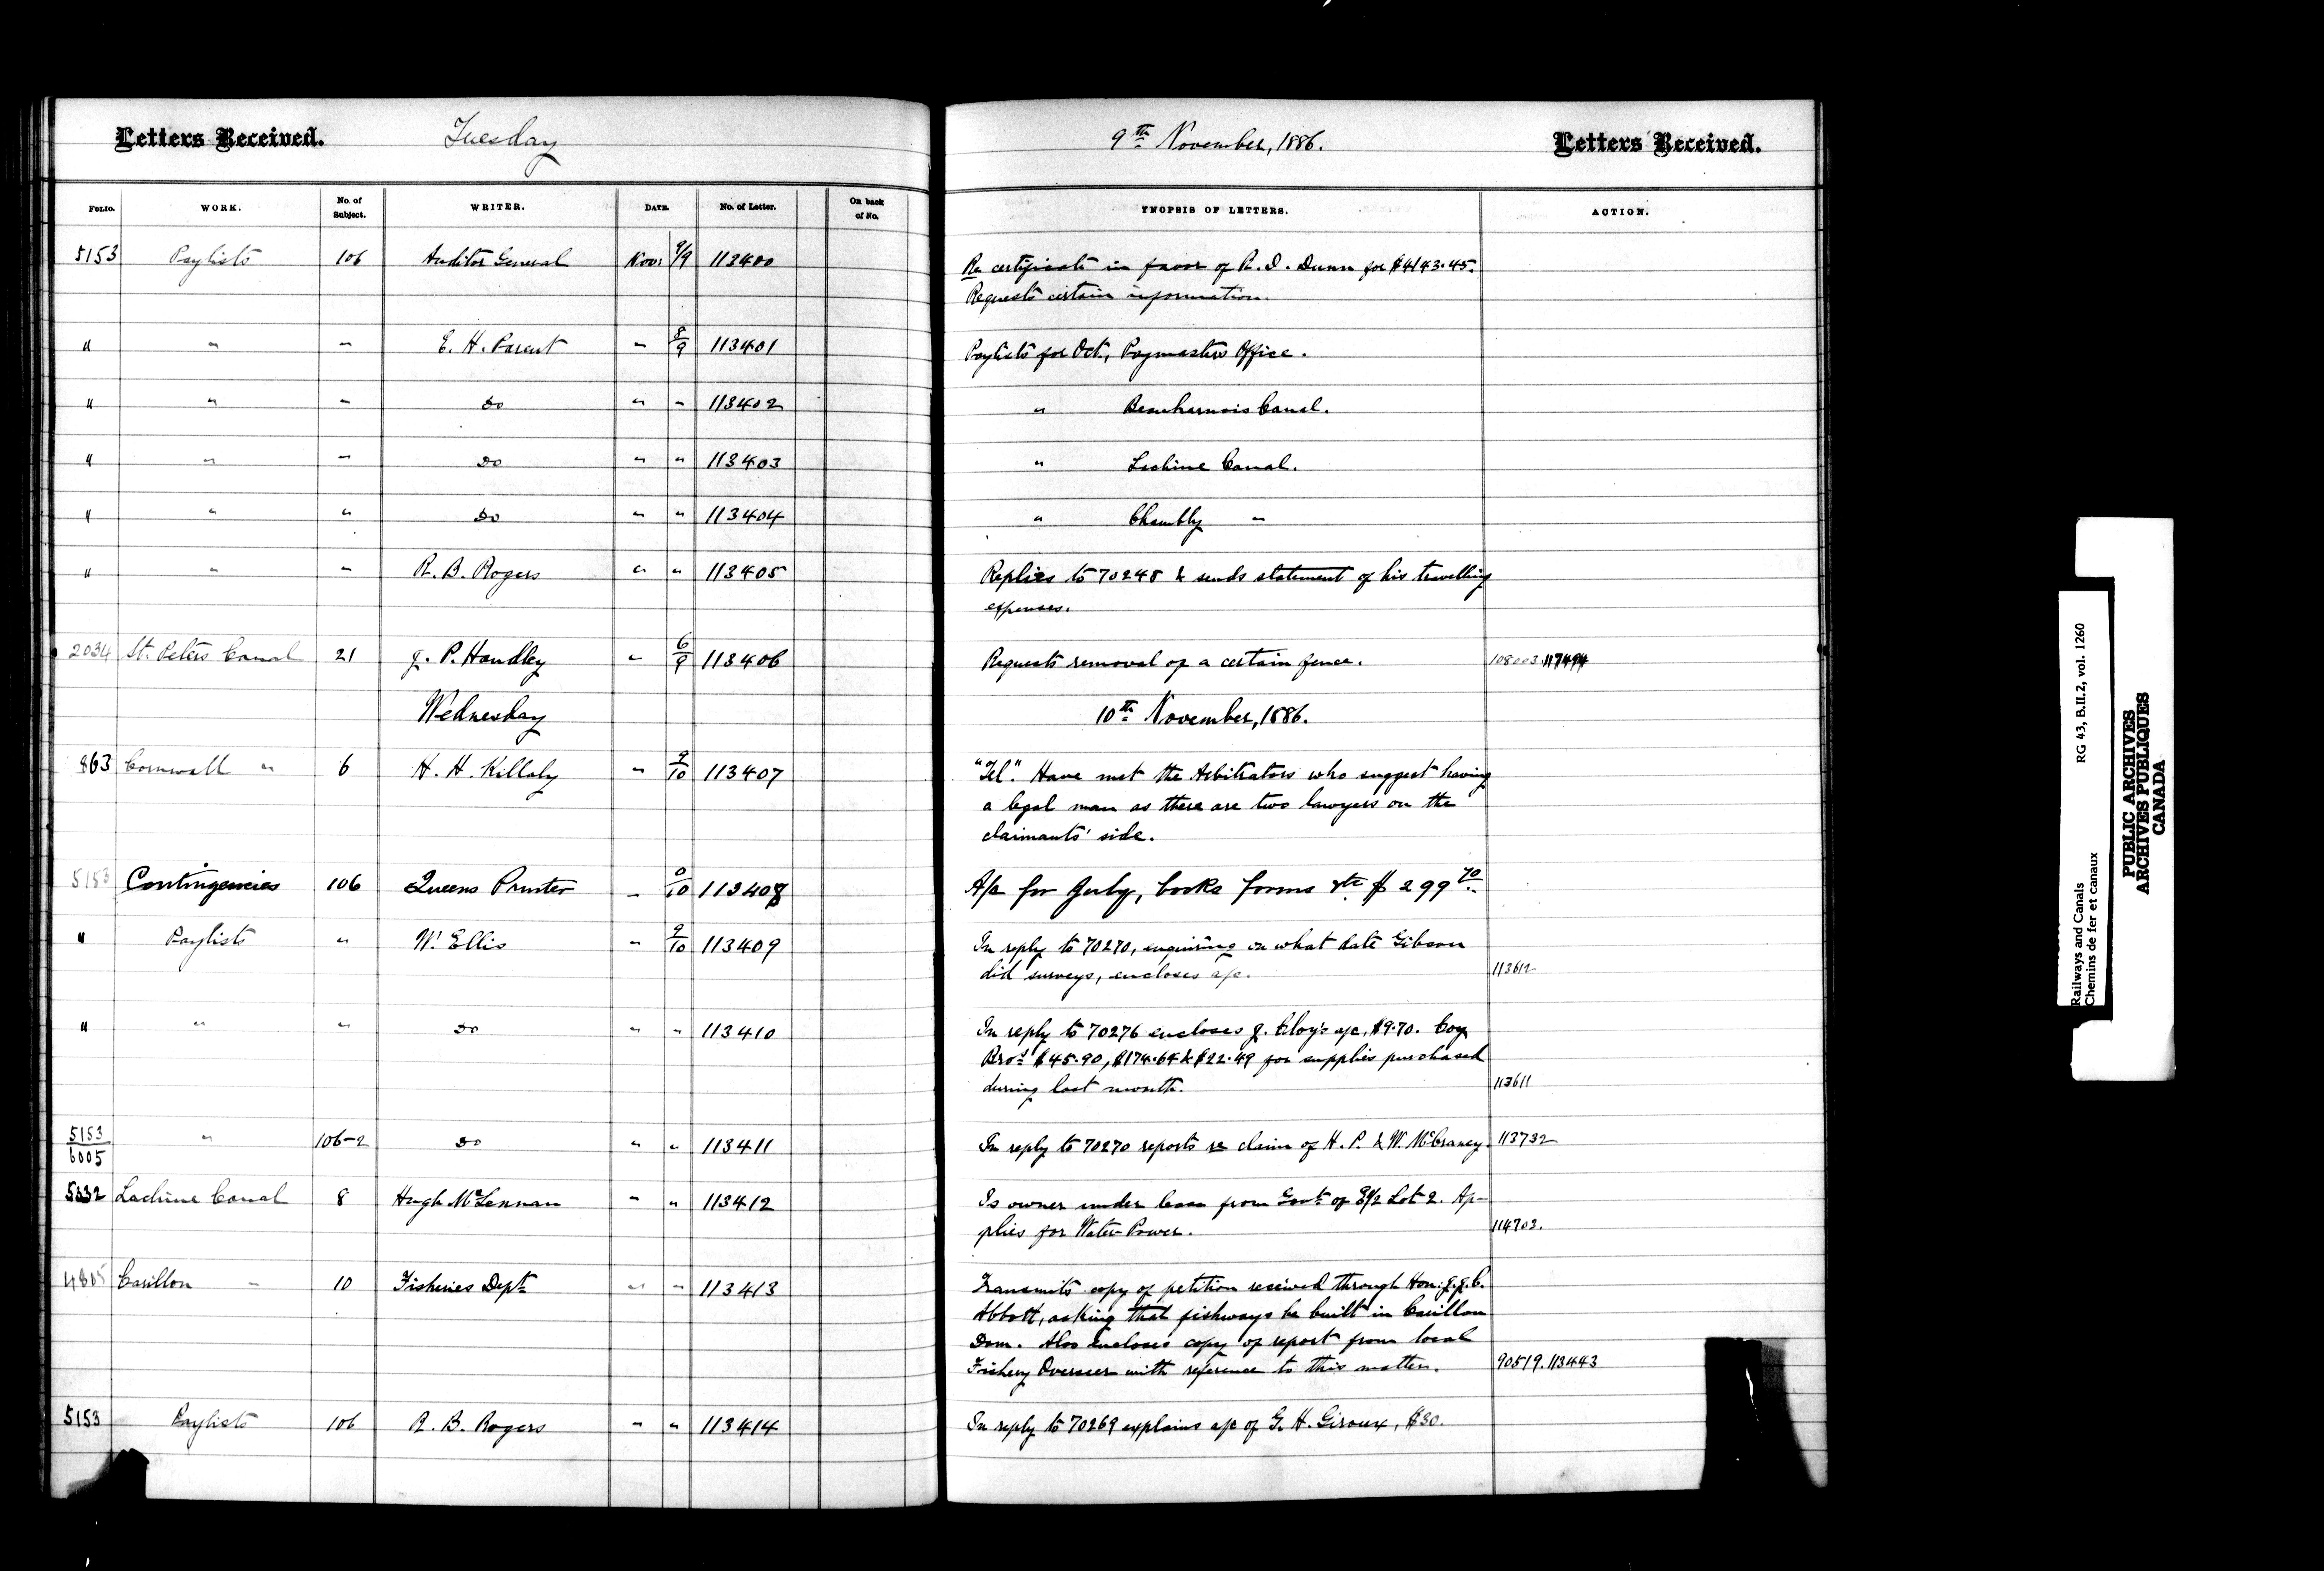 Letters Received. Tuesday 9th November, 1886. Letters Received.
FOLIO. WORK. No. of Subject. WRITER. DATE. No. of Letter. On back of No. YNOPSIS OF LETTERS. ACTION.
5153 Paylists 106 Auditor General Nov: 9/9 113400 Re certificate in favor of R. D. Dunn for $4143.45.
Requests certain information.
" " " E. H. Parent " 8/9 113401 Paylists for Oct., Paymasters Office.
" " " Do " " 113402 " Beauharnois Canal.
" " " Do " " 113403 " Lachine Canal.
" " " Do " " 113404 " Chambly "
" " " R. B. Rogers " " 113405 Replies to 70248 & sends statement of his travelling
expenses.
2034 St. Peters Canal 21 J. P. Handley " 6/9 113406 Requests removal of a certain fence. 108003.117494
Wednesday 10th November, 1886.
863 Cornwall " 6 H. H. Killaly " 9/10 113407 "Tel". Have met the Arbitrators who suggest having
a legal man as there are two lawyers on the
claimants' side.
5153 Contingencies 106 Queens Printer " 113408 A/c for July, books forms &tc $299.70
" Paylists " W. Ellis " 9/10 113409 In reply to 70270, enquiring on what date Gibson
did surveys, encloses a/c. 113612
" " " Do " " 113410 In reply to 70276 encloses J. Cloy's a/c, $9.70. Coy
Bros $45.90, $174.64 & $22.49 for supplies purchased
during last month. 113611
5153/6005 " 106-2 Do " " 113411 In reply to 70270 reports re claim of H. P. & W. McCraney. 113732
5332 Lachine Canal 8 Hugh McLennan " " 113412 Is owner under lease from Govt of E1/2 Lot 2. Ap-
plies for Water Power. 114702.
4805 Carillon " 10 Fisheries Dept " " 113413 Transmits copy of petition received through Hon: J.J.C.
Abbott, asking that fishways be built in Carillon
Dam. Also encloses copy of report from local
Fishery Overseer with reference to this matter. 90519.113443
5153 Paylists 106 R. B. Rogers " " 113414 In reply to 70269 explains a/c of G. H. Giroux, $30.
Railways and Canals RG 43, B.II.2, vol. 1260
Chemins de fer et canaux
PUBLIC ARCHIVES
ARCHIVES PUBLIQUES
CANADA